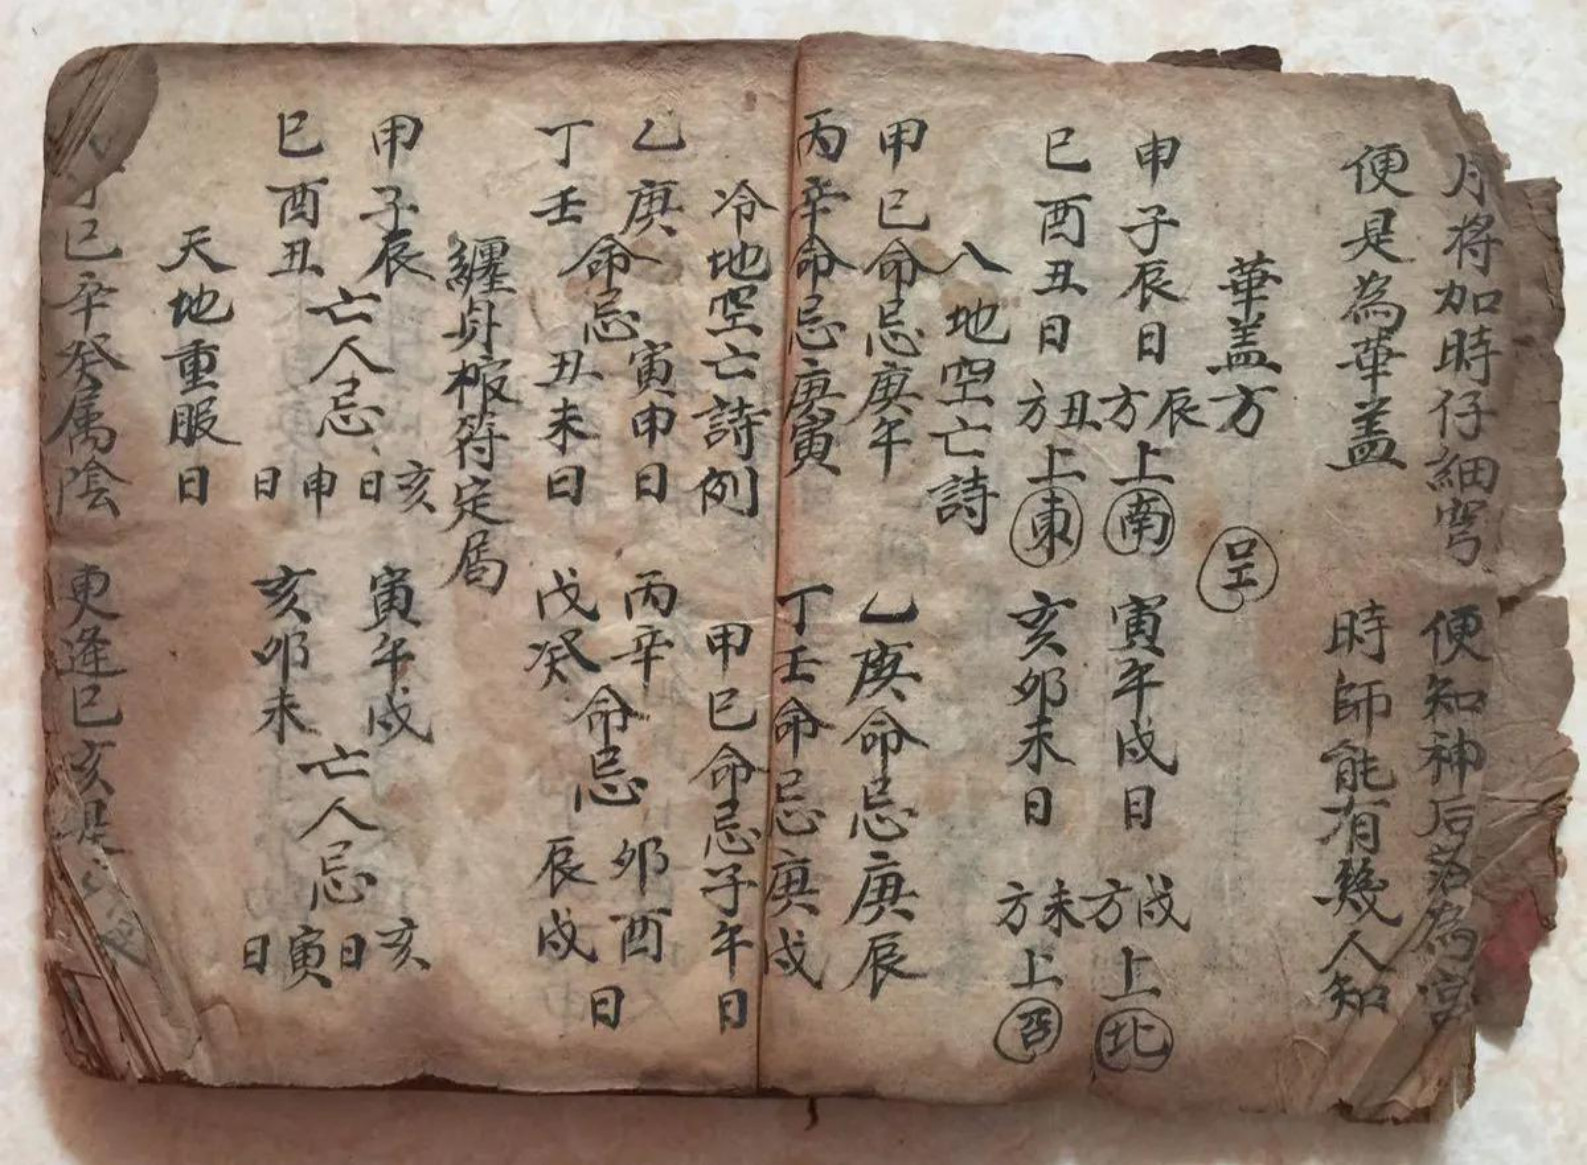 月将加時仔細穹 便知神后落為宮
便是為華盖 時師能有幾人知
華盖方
申子辰日 辰方上 南 寅午戍日 戍方上 北
巳酉丑日 丑方上 東 亥卯未日 未方上 西
八地空亡詩
甲巳命忌庚午 乙庚命忌庚辰
丙辛命忌庚寅 丁壬命忌庚戍
冷地空亡詩例 甲巳命忌子午日
乙庚命忌寅申日 丙辛命忌卯酉日
丁壬命忌丑未日 戊癸命忌辰戍日
纏身棺符定局
申子辰亡人忌亥日 寅午戍亡人忌亥日
巳酉丑亡人忌申日 亥卯未亡人忌寅日
天地重服日
巳辛癸属陰 更逢巳亥是